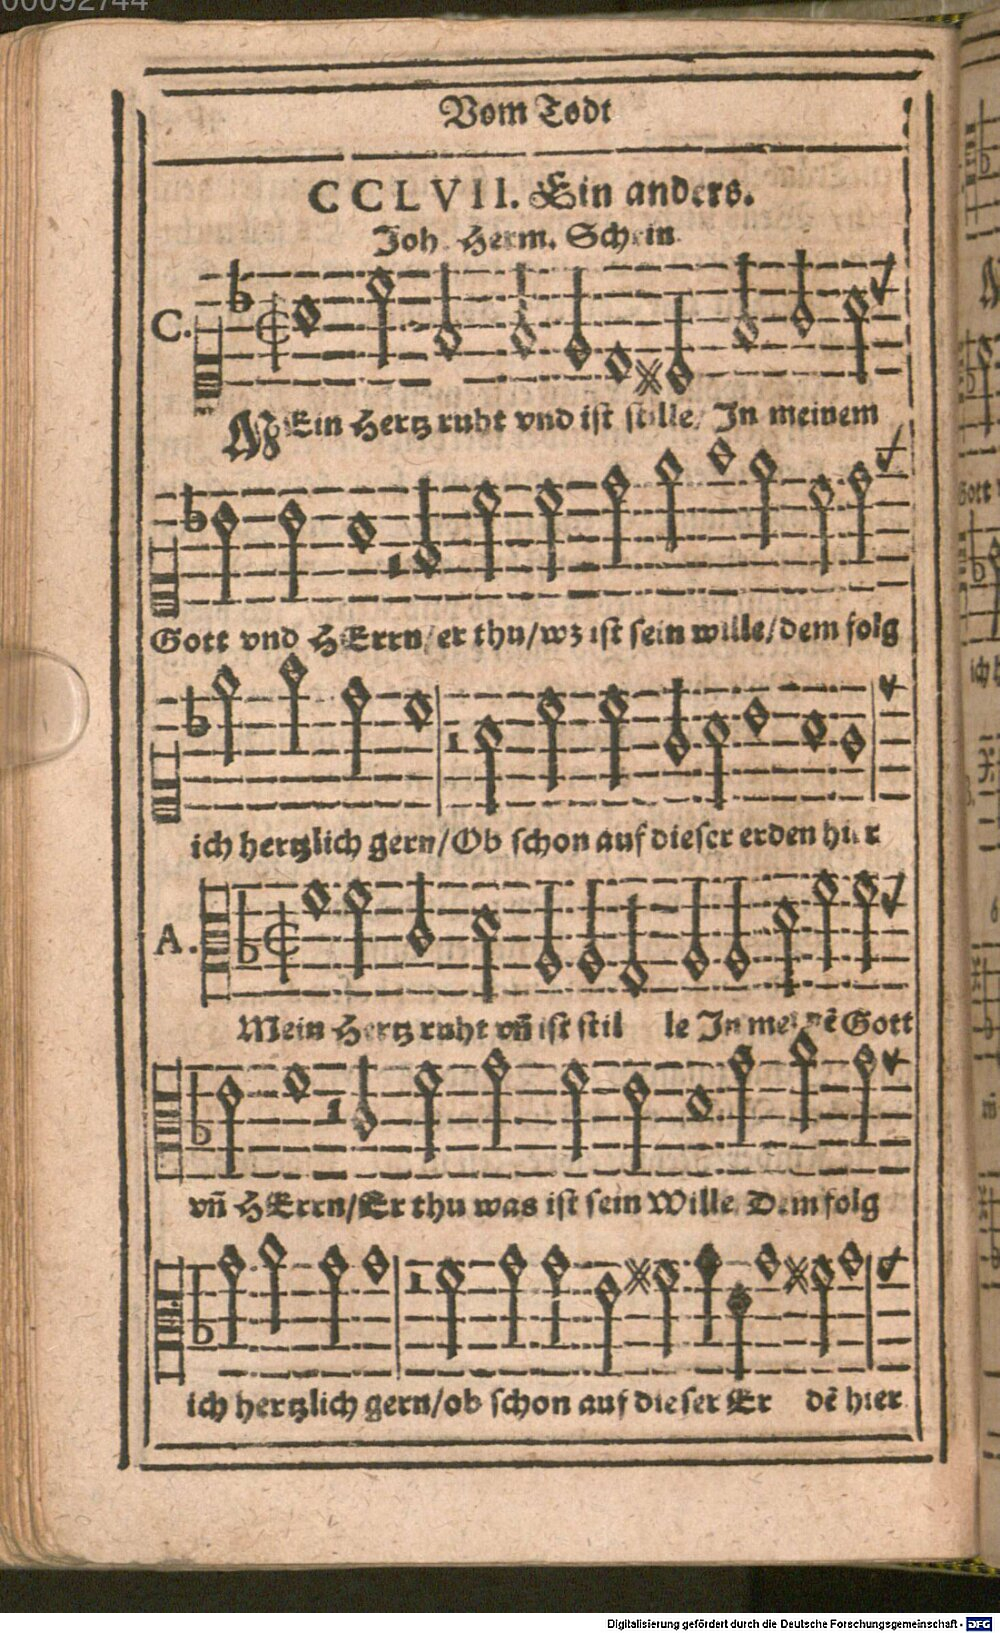 00092744
Vom Todt
CCLVII. Ein anders.
Joh. Herm. Schein
C.
MEin Hertz ruht vnd ist stille/ In meinem
Gott vnd HErrn/er thu/wz ist sein wille/dem folg
ich hertzlich gern/Ob schon auf dieser erden hier
A.
Mein Hertz ruht vñ ist stil le In meinẽ Gott
vñ HErrn/Er thu was ist sein Wille Dem folg
ich hertzlich gern/ob schon auf dieser Er dẽ hier
Digitalisierung gefördert durch die Deutsche Forschungsgemeinschaft - DFG